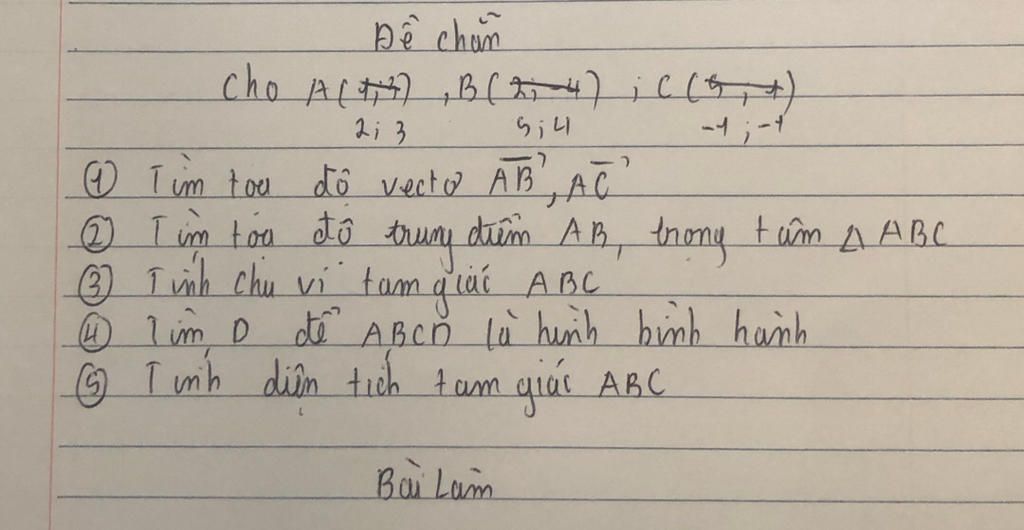 Đề chẵn
Cho A(1;3), B(2;-4); C(5;1)
2;3 5;4 -1;-1
① Tìm tọa độ vectơ AB, AC
② Tìm tọa độ trung điểm AB, trọng tâm Δ ABC
③ Tính chu vi tam giác ABC
④ Tìm D để ABCD là hình bình hành
⑤ Tính diện tích tam giác ABC
Bài Làm